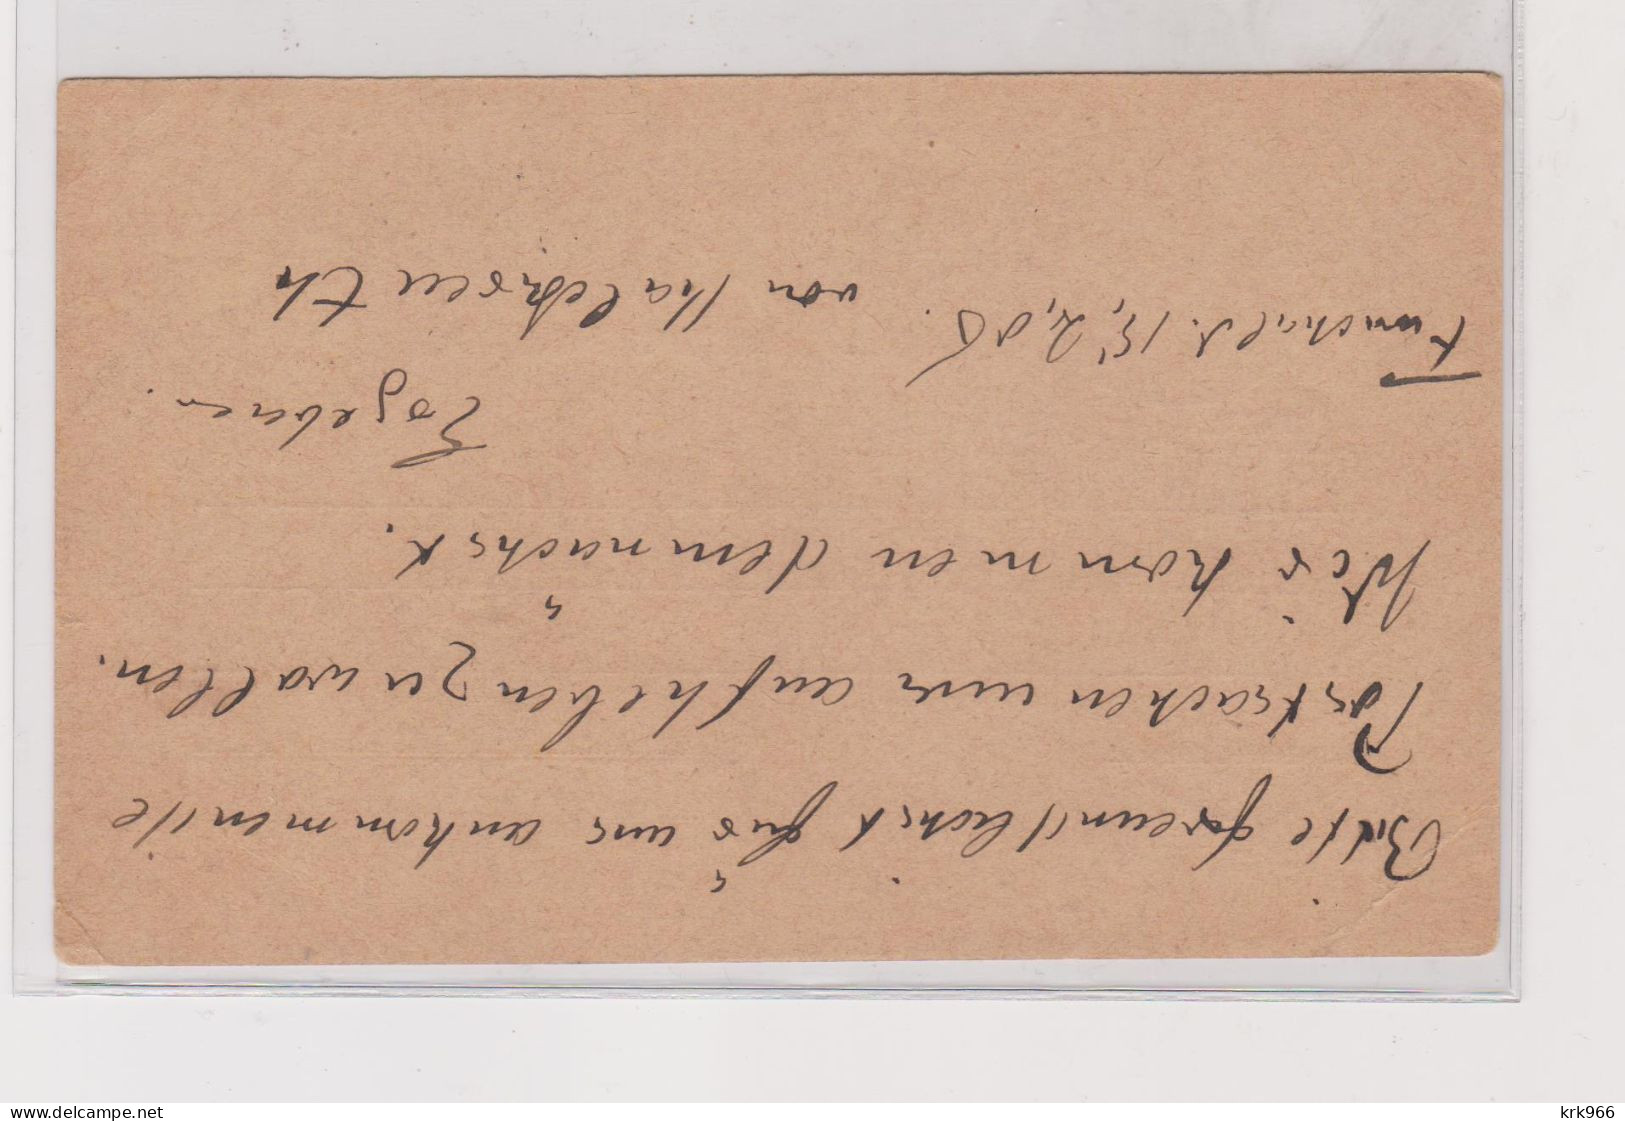 Bitte freundlichst für uns ankommende
Postsachen uns aufheben zu wollen.
Wir kommen demnächst.
Ergeben.
Funchal d. 15,2,05. von Kalckreuth
www.delcampe.net
krk966